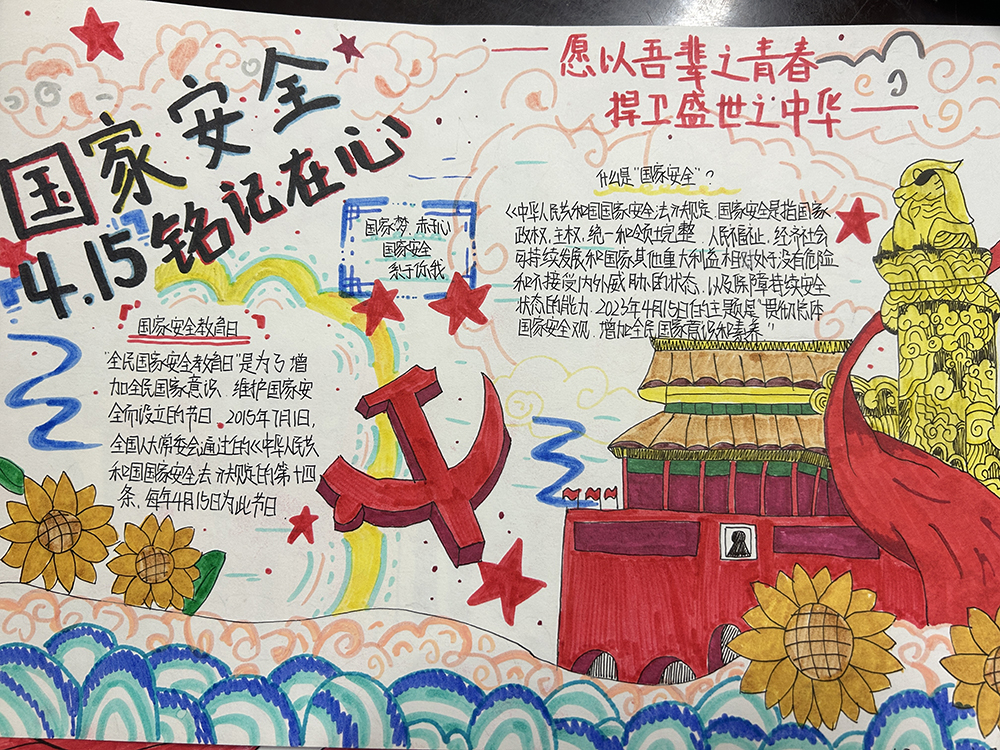 国家安全
4.15铭记在心
愿以吾辈之青春
捍卫盛世之中华
国家梦、赤扎心
国家安全
系于你我
什么是"国家安全"?
《中华人民共和国国家安全法》规定,国家安全是指国家
政权、主权、统一和领土完整、人民福祉、经济社会
可持续发展和国家其他重大利益相对处于没有危险
和不接受内外威胁的状态,以及保障持续安全
状态的能力.2023年4月15日的主题是"贯彻总体
国家安全观,增加全民国家意识和素养"
国家安全教育日
"全民国家安全教育日"是为了增
加全民国家意识、维护国家安
全而设立的节日.2015年7月1日,
全国人大常委会通过的《中华人民共
和国国家安全法》规定的第十四
条,每年4月15日为此节日